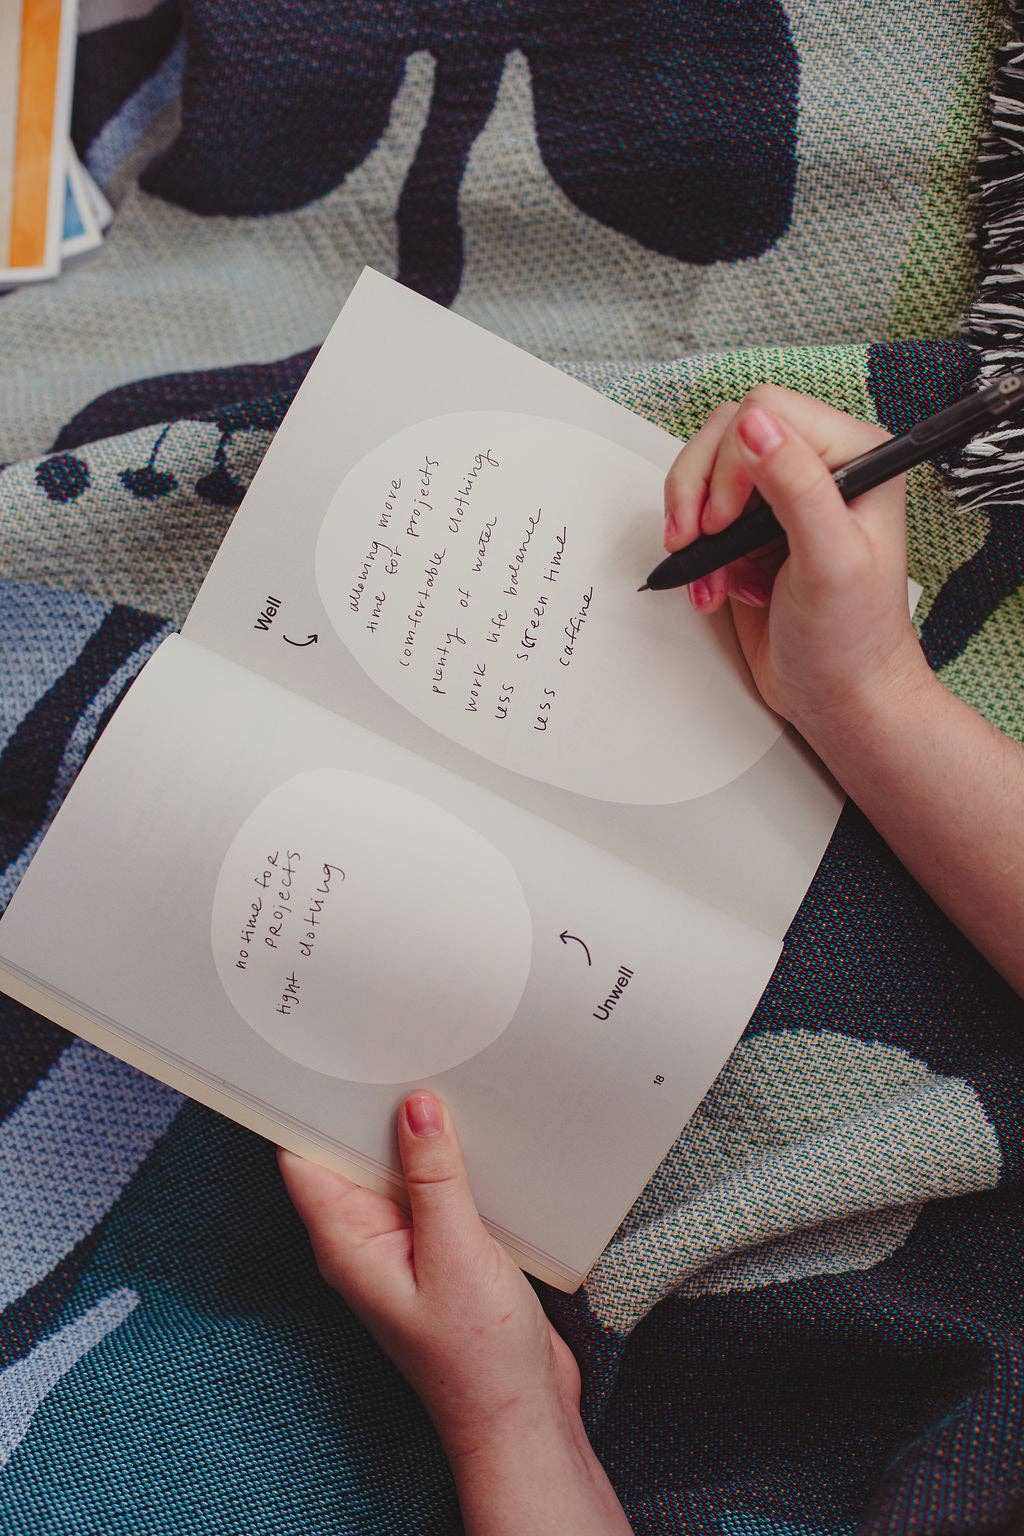 Well
allowing more
time for projects
comfortable clothing
plenty of water
work life balance
less screen time
less caffine
no time for
projects
tight clothing
Unwell
18